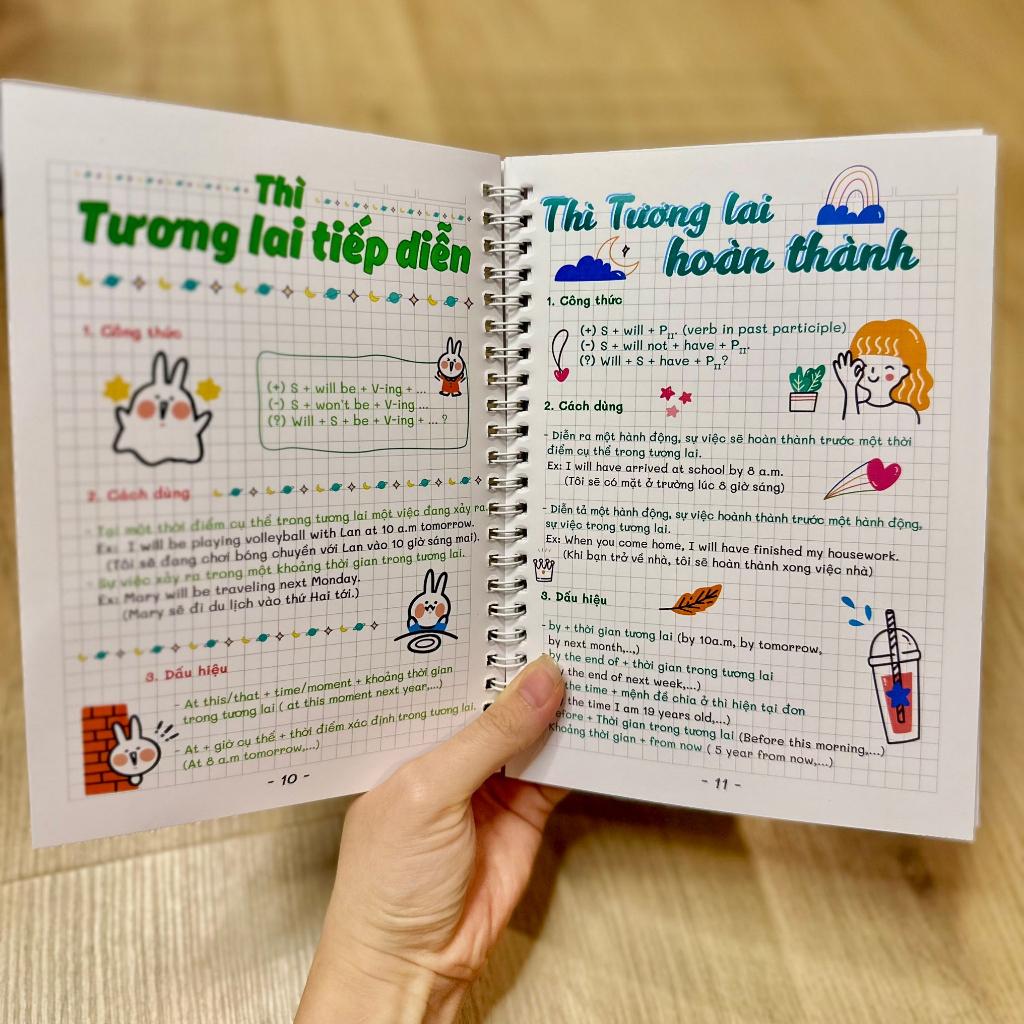 Thì
Tương lai tiếp diễn
1. Công thức
(+) S + will be + V-ing + ...
(-) S + won't be + V-ing ...
(?) Will + S + be + V-ing + ... ?
2. Cách dùng
- Tại một thời điểm cụ thể trong tương lai một việc đang xảy ra.
Ex: I will be playing volleyball with Lan at 10 a.m tomorrow.
(Tôi sẽ đang chơi bóng chuyền với Lan vào 10 giờ sáng mai).
- Sự việc xảy ra trong một khoảng thời gian trong tương lai.
Ex: Mary will be traveling next Monday.
(Mary sẽ đi du lịch vào thứ Hai tới.)
3. Dấu hiệu
- At this/that + time/moment + khoảng thời gian
trong tương lai ( at this moment next year,...)
- At + giờ cụ thể + thời điểm xác định trong tương lai.
(At 8 a.m tomorrow,...)
- 10 -
Thì Tương lai
hoàn thành
1. Công thức
(+) S + will + PII. (verb in past participle)
(-) S + will not + have + PII.
(?) Will + S + have + PII?
2. Cách dùng
- Diễn ra một hành động, sự việc sẽ hoàn thành trước một thời
điểm cụ thể trong tương lai.
Ex: I will have arrived at school by 8 a.m.
(Tôi sẽ có mặt ở trường lúc 8 giờ sáng)
- Diễn tả một hành động, sự việc hoành thành trước một hành động,
sự việc trong tương lai.
Ex: When you come home, I will have finished my housework.
(Khi bạn trở về nhà, tôi sẽ hoàn thành xong việc nhà)
3. Dấu hiệu
- by + thời gian tương lai (by 10a.m, by tomorrow,
by next month,...,)
by the end of + thời gian trong tương lai
the end of next week,...)
the time + mệnh đề chia ở thì hiện tại đơn
the time I am 19 years old,...)
+ Thời gian trong tương lai (Before this morning,...)
Khoảng thời gian + from now ( 5 year from now,...)
- 11 -